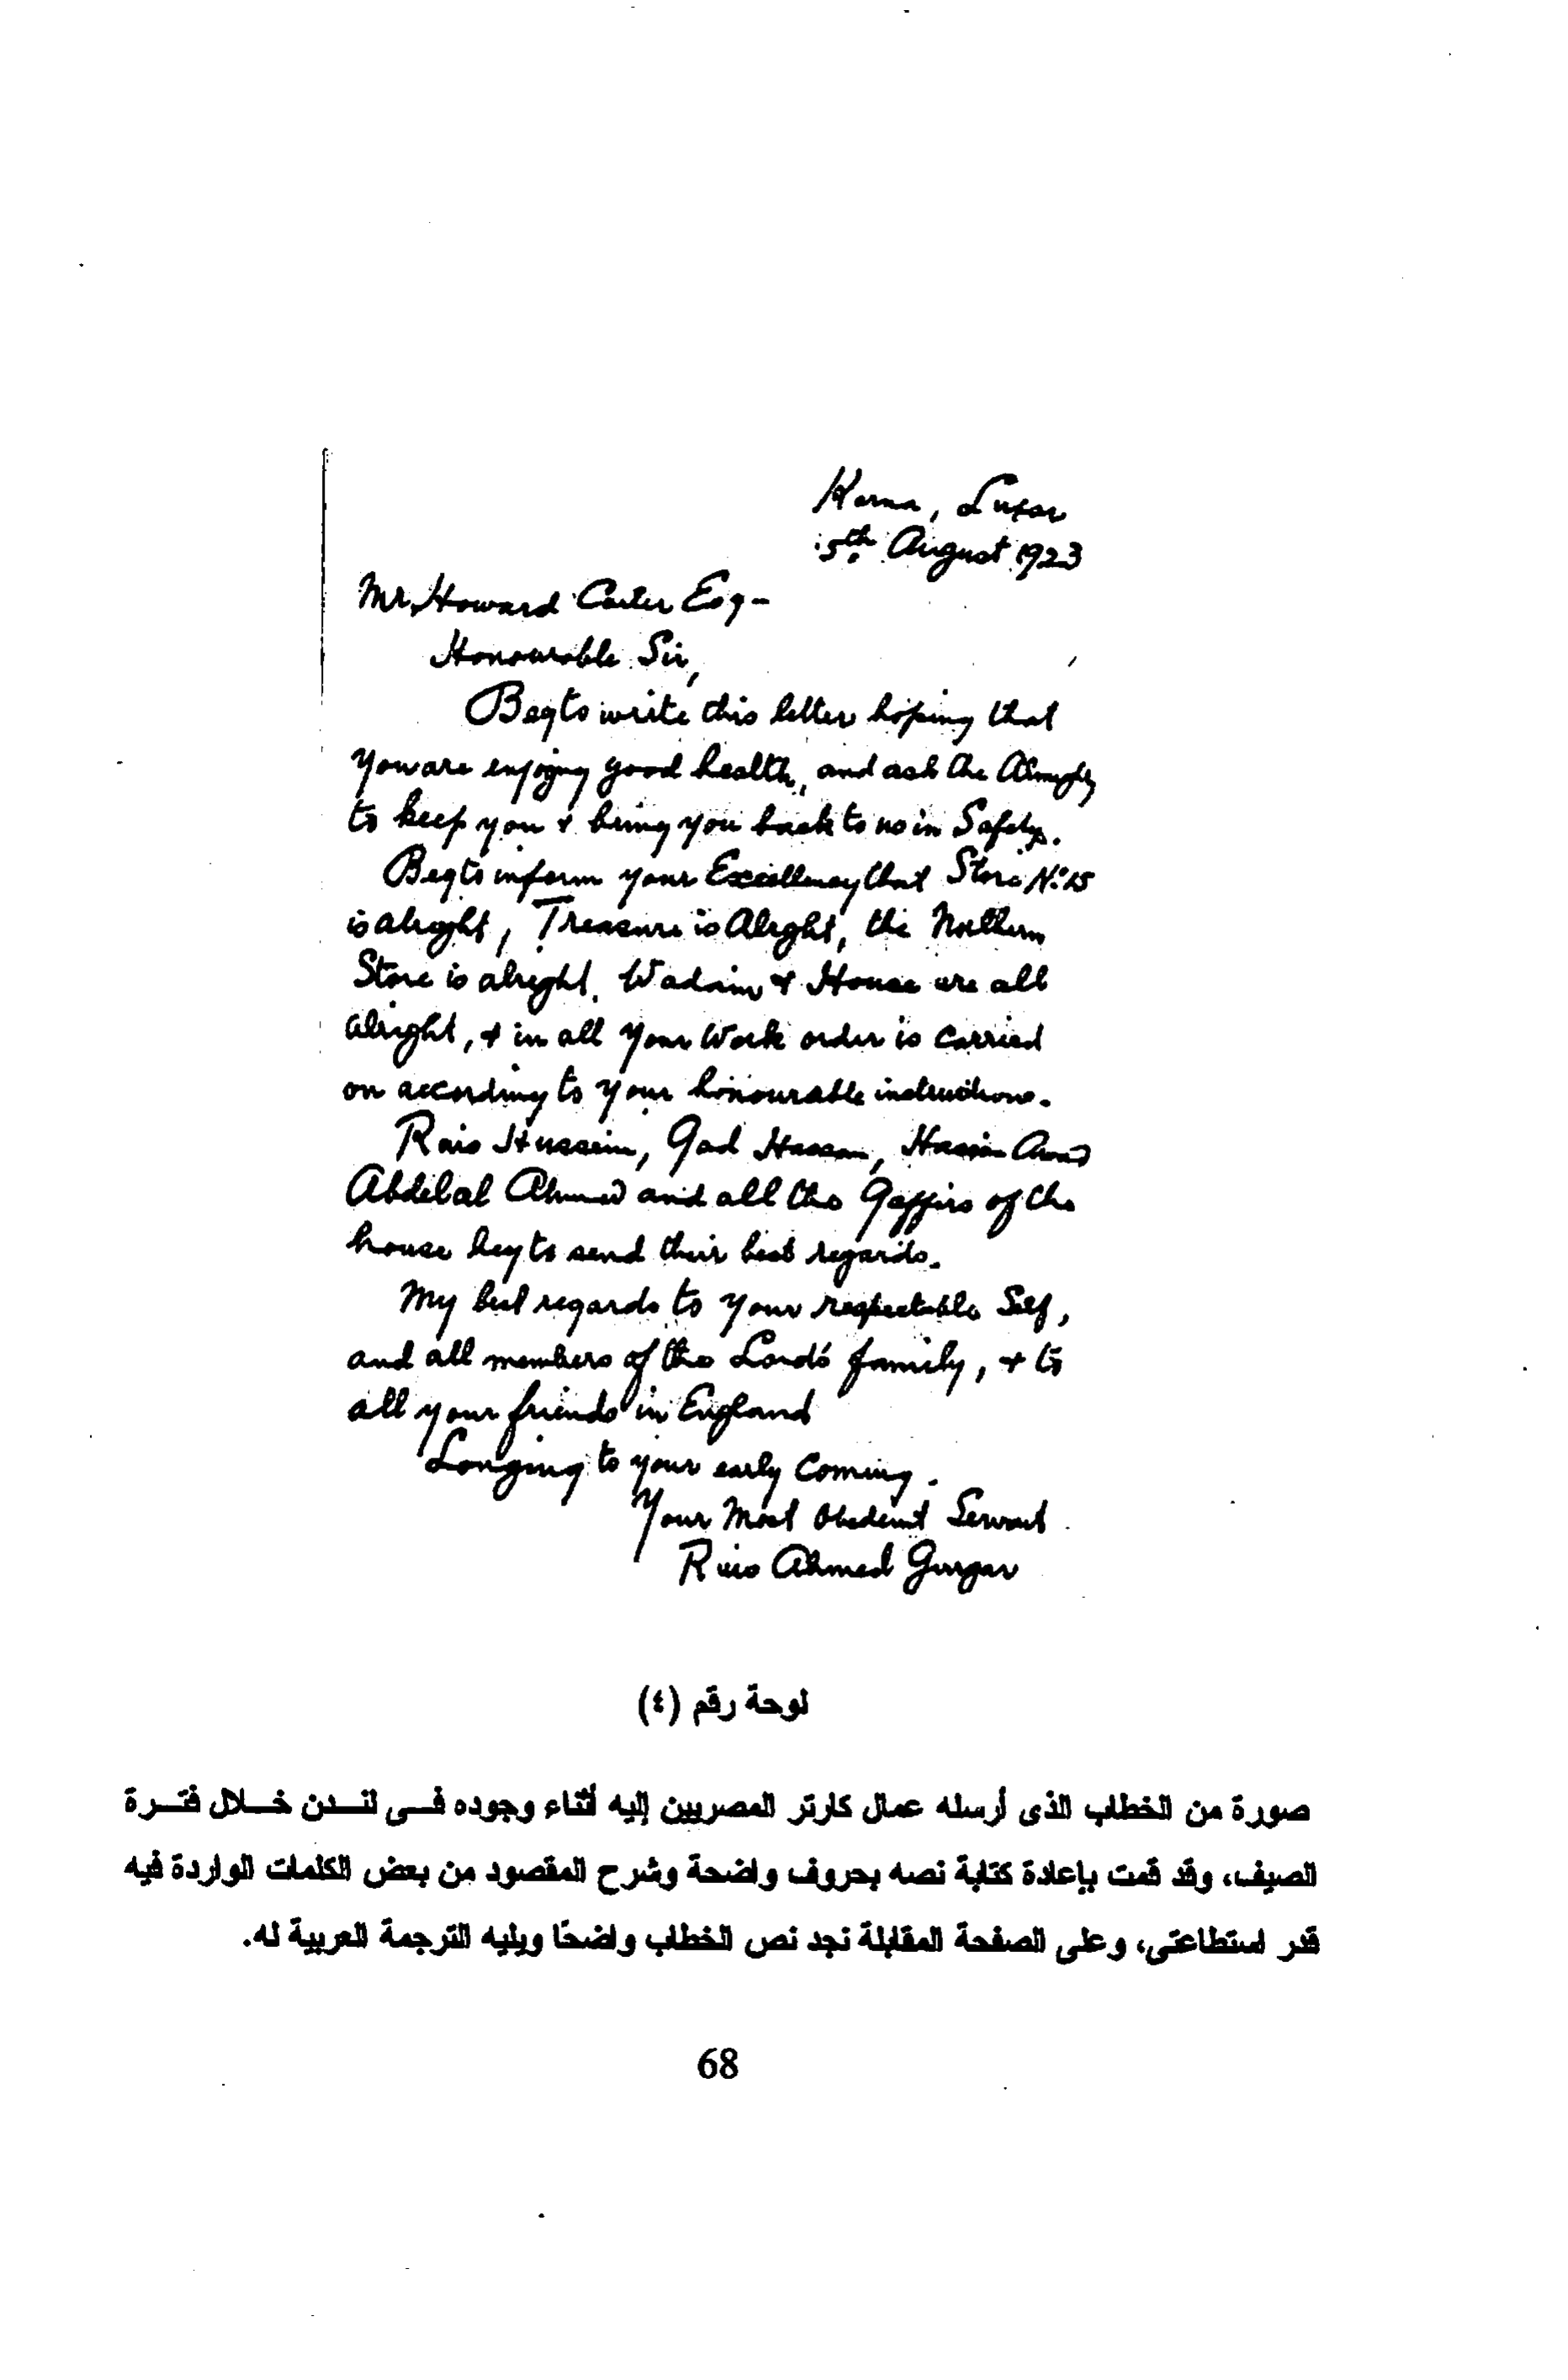 Karna, Luxor
5th August 1923
Mr. Howard Carter Esq-
Honourable Sir,
Beg to write this letter hoping that
you are enjoying good health, and ask the Almighty
to keep you & bring you back to us in Safety.
Beg to inform your Excellency that Store No. 15
is alright, Treasure is Alright, the Northern
Store is alright. Wadain & House are all
alright, & in all your Work order is carried
on according to your honourable instructions.
Rais Hussein, Gad Hassan, Hassan Awad
Abdelal Ahmed and all the Gaffirs of the
house beg to send their best regards.
My best regards to your respectable Self,
and all members of the Lord's family, & to
all your friends in England
Longing to your early Coming.
Your Most Obedient Servant
Rais Ahmed Gurgar
لوحة رقم (٤)
صورة من الخطاب الذى أرسله عمال كارتر المصريين إليه أثناء وجوده فى لندن خلال فترة
الصيف، وقد قمت بإعادة كتابة نصه بحروف واضحة وشرح المقصود من بعض الكلمات الواردة فيه
قدر استطاعتى، وعلى الصفحة المقابلة نجد نص الخطاب واضحًا ويليه الترجمة العربية له.
68